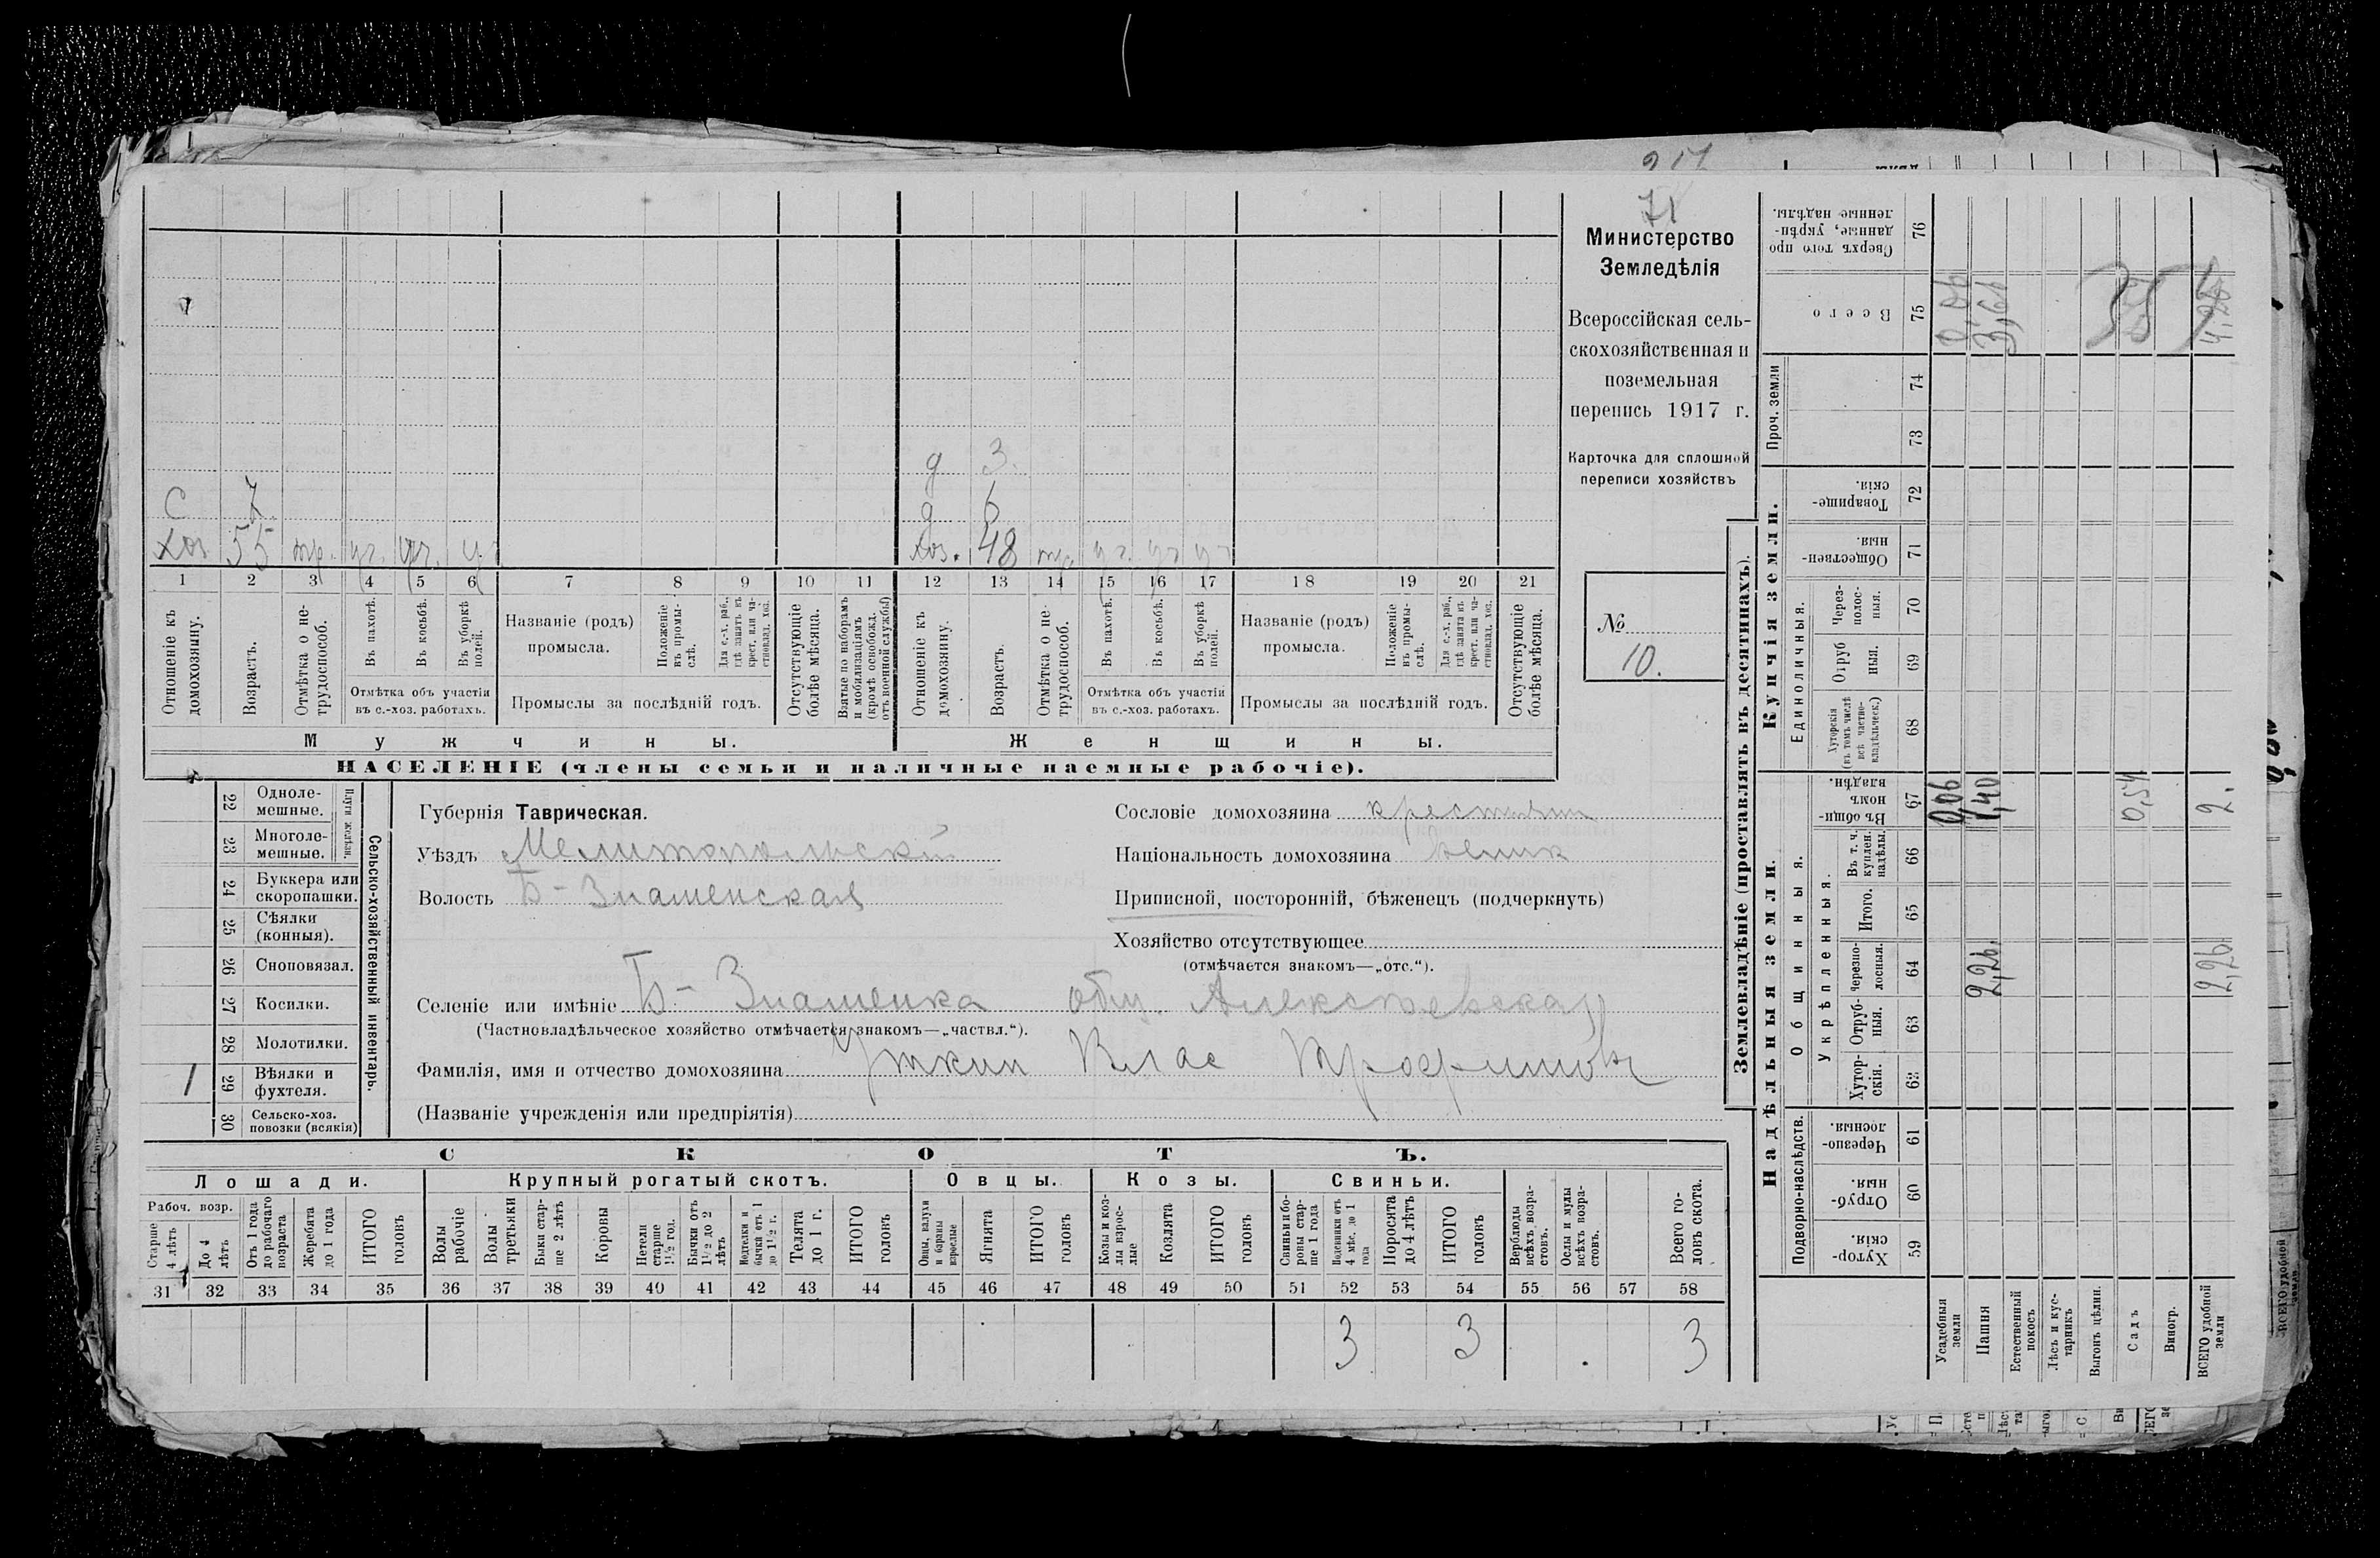 71
Министерство
Земледѣлія
Всероссійская сель-
скохозяйственная и
поземельная
перепись 1917 г.
Карточка для сплошной
переписи хозяйствъ
№
10.
д 3.
С 7 д 6
хоз 55 тр. уч. уч. уч хоз. 48 тр. уч. уч уч
1 2 3 4 5 6 7 8 9 10 11 12 13 14 15 16 17 18 19 20 21
Отношеніе къ домохозяину.
Возрастъ.
Отмѣтка о не-трудоспособ.
Въ пахотѣ.
Въ косьбѣ.
Въ уборкѣ полей.
Отмѣтка объ участіи
въ с.-хоз. работахъ.
Названіе (родъ)
промысла.
Положеніе въ промы-слѣ.
Для с.-х. раб., гдѣ занятъ въ крест. или ча-стновлад. хоз.
Промыслы за послѣдній годъ.
Отсутствующіе болѣе мѣсяца.
Взятые по наборамъ и мобилизаціямъ (кромѣ освобожд. отъ военной службы)
Отношеніе къ домохозяину.
Возрастъ.
Отмѣтка о не-трудоспособ.
Въ пахотѣ.
Въ косьбѣ.
Въ уборкѣ полей.
Отмѣтка объ участіи
въ с.-хоз. работахъ.
Названіе (родъ)
промысла.
Положеніе въ промы-слѣ.
Для с.-х. раб., гдѣ занята въ крест. или ча-стновлад. хоз.
Промыслы за послѣдній годъ.
Отсутствующіе болѣе мѣсяца.
Мужчины. Женщины.
НАСЕЛЕНІЕ (члены семьи и наличные наемные рабочіе).
22 Одноле-мешные.
23 Многоле-мешные.
Плуги желѣзн.
24 Буккера или скоропашки.
25 Сѣялки (конныя).
26 Сноповязал.
27 Косилки.
28 Молотилки.
1 29 Вѣялки и фухтеля.
30 Сельско-хоз. повозки (всякія)
Сельско-хозяйственный инвентарь.
Губернія Таврическая.
Уѣздъ Мелитопольскій
Волость Б-Знаменская
Сословіе домохозяина
Національность домохозяина
Приписной, посторонній, бѣженецъ (подчеркнуть)
Хозяйство отсутствующее
(отмѣчается знакомъ—„отс.“).
Селеніе или имѣніе Б- Знаменка общ. Алексѣевская
(Частновладѣльческое хозяйство отмѣчается знакомъ—„частвл.“).
Фамилія, имя и отчество домохозяина Уткин Влас Трофимовъ
(Названіе учрежденія или предпріятія)
СКОТЪ.
Лошади. Крупный рогатый скотъ. Овцы. Козы. Свиньи.
Рабоч. возр.
Старше 4 лѣтъ
До 4 лѣтъ
Отъ 1 года до рабочаго возраста
Жеребята до 1 года
ИТОГО головъ
Волы рабочіе
Волы третьяки
Быки стар-ше 2 лѣтъ
Коровы
Нетели старше 1½ год.
Бычки отъ 1½ до 2 лѣтъ
Нетелки и бычки отъ 1 до 1½ г.
Телята до 1 г.
ИТОГО головъ
Овцы, валухи и бараны взрослые
Ягнята
ИТОГО головъ
Козы и коз-лы взрос-лые
Козлята
ИТОГО головъ
Свиньи и бо-ровы стар-ше 1 года
Подсвинки отъ 4 мѣс. до 1 года
Поросята до 4 лѣтъ
ИТОГО головъ
Верблюды всѣхъ возра-стовъ.
Ослы и мулы всѣхъ возра-стовъ.
Всего го-ловъ скота.
31 32 33 34 35 36 37 38 39 40 41 42 43 44 45 46 47 48 49 50 51 52 53 54 55 56 57 58
3 3 3
Землевладѣніе (проставлять въ десятинахъ).
Сверхъ того про данные, укрѣп-ленные надѣлы. 76
Всего 75 0,06 3,66 4,26
Проч. земли 74 73
Купчія земли.
Товарище-скія. 72
Обществен-ныя. 71
Единоличныя.
Через-полос-ныя. 70
Отруб ныя. 69
Хуторскія (въ томъ числѣ всѣ частно-владѣльческ.) 68
Надѣльныя земли.
Общинныя.
Въ общин-номъ владѣн. 67 0,06 1,40 0,54 2.
Укрѣпленныя.
Въ т. ч. куплен. надѣлы. 66
Итого. 65
Черезпо-лосныя. 64 2,26 2,26
Отруб-ныя. 63
Хутор-скія. 62
Подворно-наслѣдств.
Черезпо-лосныя. 61
Отруб-ныя. 60
Хутор-скія. 59
Усадебныя земли
Пашня
Естественный покосъ
Лѣсъ и кус-тарникъ
Выгонъ цѣлин.
Садъ
Виногр.
ВСЕГО удобной земли